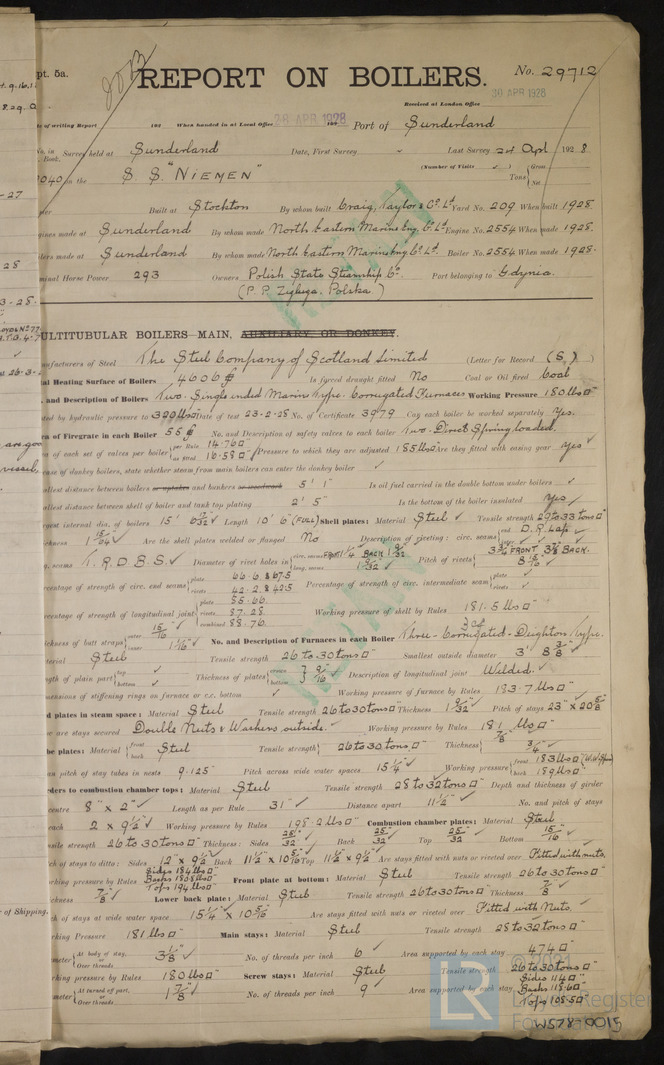 pt. 5a.
REPORT ON BOILERS.
No. 29712
Received at London Office 30 APR 1928
of writing Report 192 When handed in at Local Office 26 APR 1928 192 Port of Sunderland
No. in Survey held at Sunderland Date, First Survey Last Survey 24 Apl 1928
Book. (Number of Visits ) Gross
1040 on the S. S. "NIEMEN" Tons Net
Built at Stockton By whom built Craig, Taylor & Co. Ld Yard No. 209 When built 1928
gines made at Sunderland By whom made North Eastern Marine Eng. Co. Ld Engine No. 2554 When made 1928
lers made at Sunderland By whom made North Eastern Marine Eng. Co. Ld Boiler No. 2554 When made 1928
minal Horse Power 293 Owners Polish State Steamship Co. Port belonging to Gdynia
ULTITUBULAR BOILERS—MAIN, AUXILIARY OR DONKEY.
nufacturers of Steel The Steel Company of Scotland Limited (Letter for Record (S) )
al Heating Surface of Boilers 4606 Is forced draught fitted No Coal or Oil fired Coal
. and Description of Boilers Two. Single ended Marine Type. Corrugated Furnaces Working Pressure 180 lbs□"
ted by hydraulic pressure to 320 lbs□" Date of test 23-2-28 No. of Certificate 3979 Can each boiler be worked separately Yes.
a of Firegrate in each Boiler 55 No. and Description of safety valves to each boiler Two. Direct Spring loaded.
a of each set of valves per boiler per Rule 14.76□" as fitted 16.58□" Pressure to which they are adjusted 185 lbs□" Are they fitted with easing gear Yes
ase of donkey boilers, state whether steam from main boilers can enter the donkey boiler
allest distance between boilers or uptakes and bunkers or woodwork 5' 1" Is oil fuel carried in the double bottom under boilers
allest distance between shell of boiler and tank top plating 2' 5" Is the bottom of the boiler insulated Yes
rgest internal dia. of boilers 15' 6 7/32" Length 10' 6" (FULL) Shell plates: Material Steel Tensile strength 29 to 33 tons□"
ckness 1 15/64 Are the shell plates welded or flanged No Description of riveting: circ. seams end D. R. Laps inter.
g. seams T. R. D. B. S. Diameter of rivet holes in circ. seams FRONT 1 1/4 BACK 1 9/32 long. seams 1 9/32 Pitch of rivets 3 3/4 FRONT 3 7/8 BACK. 8 15/16
centage of strength of circ. end seams plate 66.6 & 67.5 rivets 42.2 & 42.5 Percentage of strength of circ. intermediate seam plate rivets
centage of strength of longitudinal joint plate 85.66 rivets 87.28 combined 88.76 Working pressure of shell by Rules 181.5 lbs□"
ckness of butt straps outer 15/16 inner 1 1/16 No. and Description of Furnaces in each Boiler Three-Corrugated-Deighton Type.
terial Steel Tensile strength 26 to 30 tons□" Smallest outside diameter 3' 8 3/8"
gth of plain part top bottom Thickness of plates crown bottom 9/16 Description of longitudinal joint Welded.
mensions of stiffening rings on furnace or c.c. bottom Working pressure of furnace by Rules 183.7 lbs□"
d plates in steam space: Material Steel Tensile strength 26 to 30 tons□" Thickness 1 9/32 Pitch of stays 23" x 20 5/8
w are stays secured Double Nuts & Washers outside. Working pressure by Rules 181 lbs□"
be plates: Material front back Steel Tensile strength 26 to 30 tons□" Thickness 7/8 3/4
an pitch of stay tubes in nests 9.125 Pitch across wide water spaces 15 1/4 Working pressure front 183 lbs□" back 189 lbs□"
rders to combustion chamber tops: Material Steel Tensile strength 28 to 32 tons□" Depth and thickness of girder
centre 8" x 2" Length as per Rule 31" Distance apart 11 1/2 No. and pitch of stays
each 2 x 9 1/2 Working pressure by Rules 198.2 lbs□" Combustion chamber plates: Material Steel
sile strength 26 to 30 tons□" Thickness: Sides 25/32 Back 25/32 Top 25/32 Bottom 15/16
ch of stays to ditto: Sides 12" x 9 1/2 Back 11 1/2 x 10 5/16 Top 11 1/2 x 9 1/2 Are stays fitted with nuts or riveted over Fitted with nuts.
rking pressure by Rules Sides 184 lbs□" Backs 183.8 lbs□" Tops 194 lbs□" Front plate at bottom: Material Steel Tensile strength 26 to 30 tons□"
ckness 7/8 Lower back plate: Material Steel Tensile strength 26 to 30 tons□" Thickness 7/8
ch of stays at wide water space 15 1/4 x 10 5/16 Are stays fitted with nuts or riveted over Fitted with Nuts.
rking Pressure 181 lbs□" Main stays: Material Steel Tensile strength 28 to 32 tons□"
meter At body of stay, or Over threads 3 1/8 No. of threads per inch 6 Area supported by each stay 474□"
rking pressure by Rules 180 lbs□" Screw stays: Material Steel Tensile strength 26 to 30 tons□"
meter At turned off part, or Over threads 1 7/8 No. of threads per inch 9 Area supported by each stay Sides 114□" Backs 118.6□" Tops 108.5□"
of Shipping.
© 2021
LR
Lloyd's Register
Foundation
W578-0015